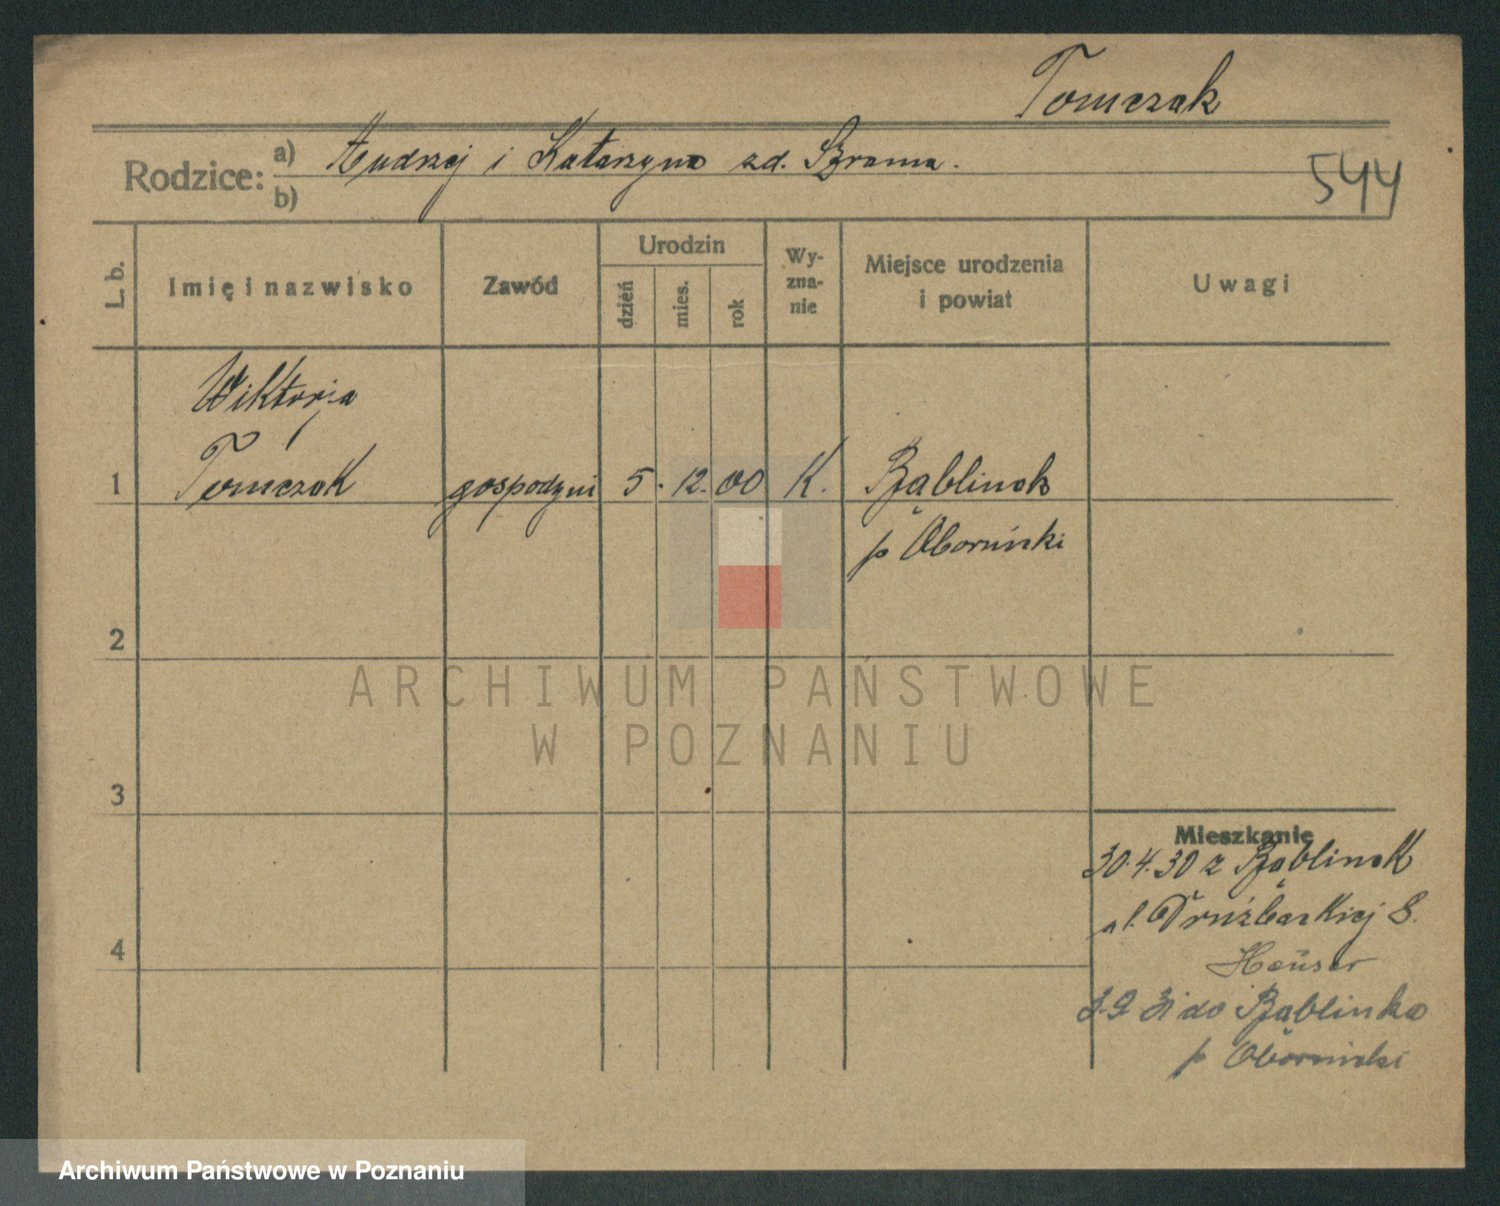 Tomczak
Rodzice:
a) Andrzej i Katarzyna zd. Szrama.
b)
544
L. b.
Imię i nazwisko
Zawód
Urodzin
dzień
mies.
rok
Wy-
zna-
nie
Miejsce urodzenia
i powiat
Uwagi
Wiktorja
1 Tomczak gospodyni 5. 12. 00 K. Bąblinek
p Obornicki
2
3
4
Mieszkanie
30.4.30 z Bąblinek
ul. Drużbackiej 8.
Häuser
do Bąblinka
p Obornicki
ARCHIWUM PAŃSTWOWE
W POZNANIU
Archiwum Państwowe w Poznaniu